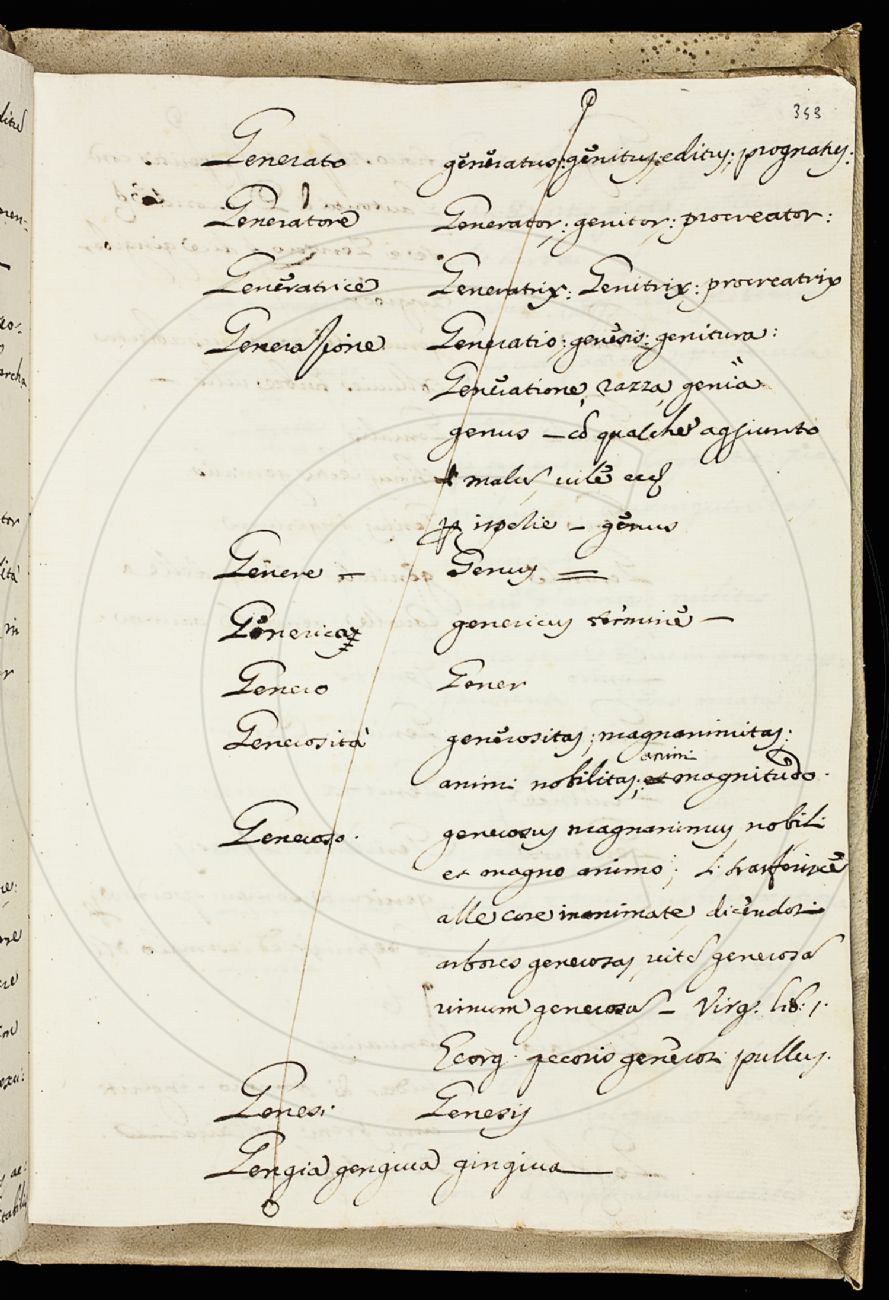 353
Generato generatus; genitus; editus; prognatus:
Generatore Generator; genitor; procreator:
Generatrice Generatrix: Genitrix: procreatrix
Generazione Generatio; genesis; genitura:
Generatione, razza, genia
genus — cõ qualche aggiunto
malus, vile
genus
Genere — Genus =
genericus termine —
Genero Gener
Generosità generositas; magnanimitas;
animi
animi nobilitas; et magnitudo.
Generoso. generosus magnanimus, nobili
et magno animo; si trasferisce
alle cose inanimate, dicendosi
arbores generosas, vite generosa
vinum generosa — Virg. lib. 1.
Georg. pecoris generosi pullus.
Genesi. Genesis
Gengia gengiva gingiva